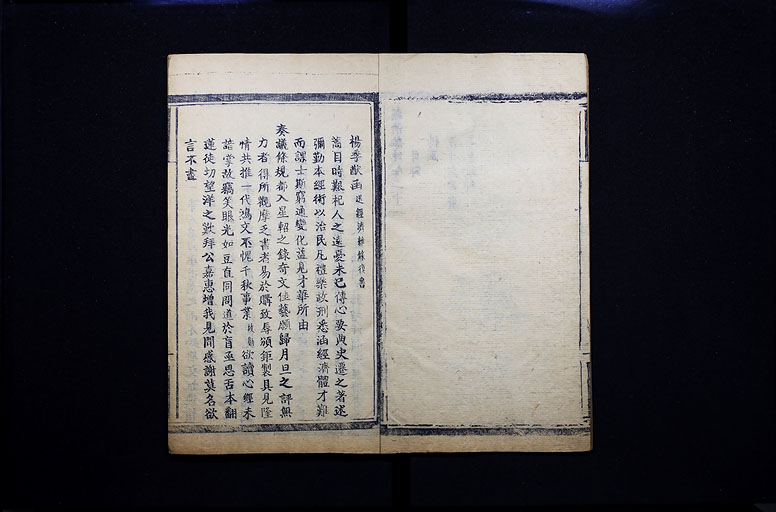 楊季猷函 送經濟抄錄從實
蒿目時艱杞人之遠憂未已傳心要典史遷之著述
彌勤本經術以治民凡禮樂政刑悉酒經濟體才難
而謀士斯窮通變化蓝見才華所由
奏議條規都入星軺之錄奇文佳藝願歸月旦之評無
力者得所觀摩乏書者易於購致辱頒鉅製具見隆
情共推一代鴻文不愧千秋事業 欲讀心經未
諳掌故竊笑眼光如豆直同問道於盲亟思舌本翻
蓮徒切望洋之歎拜公嘉惠增我見聞感謝莫名欲
言不盡